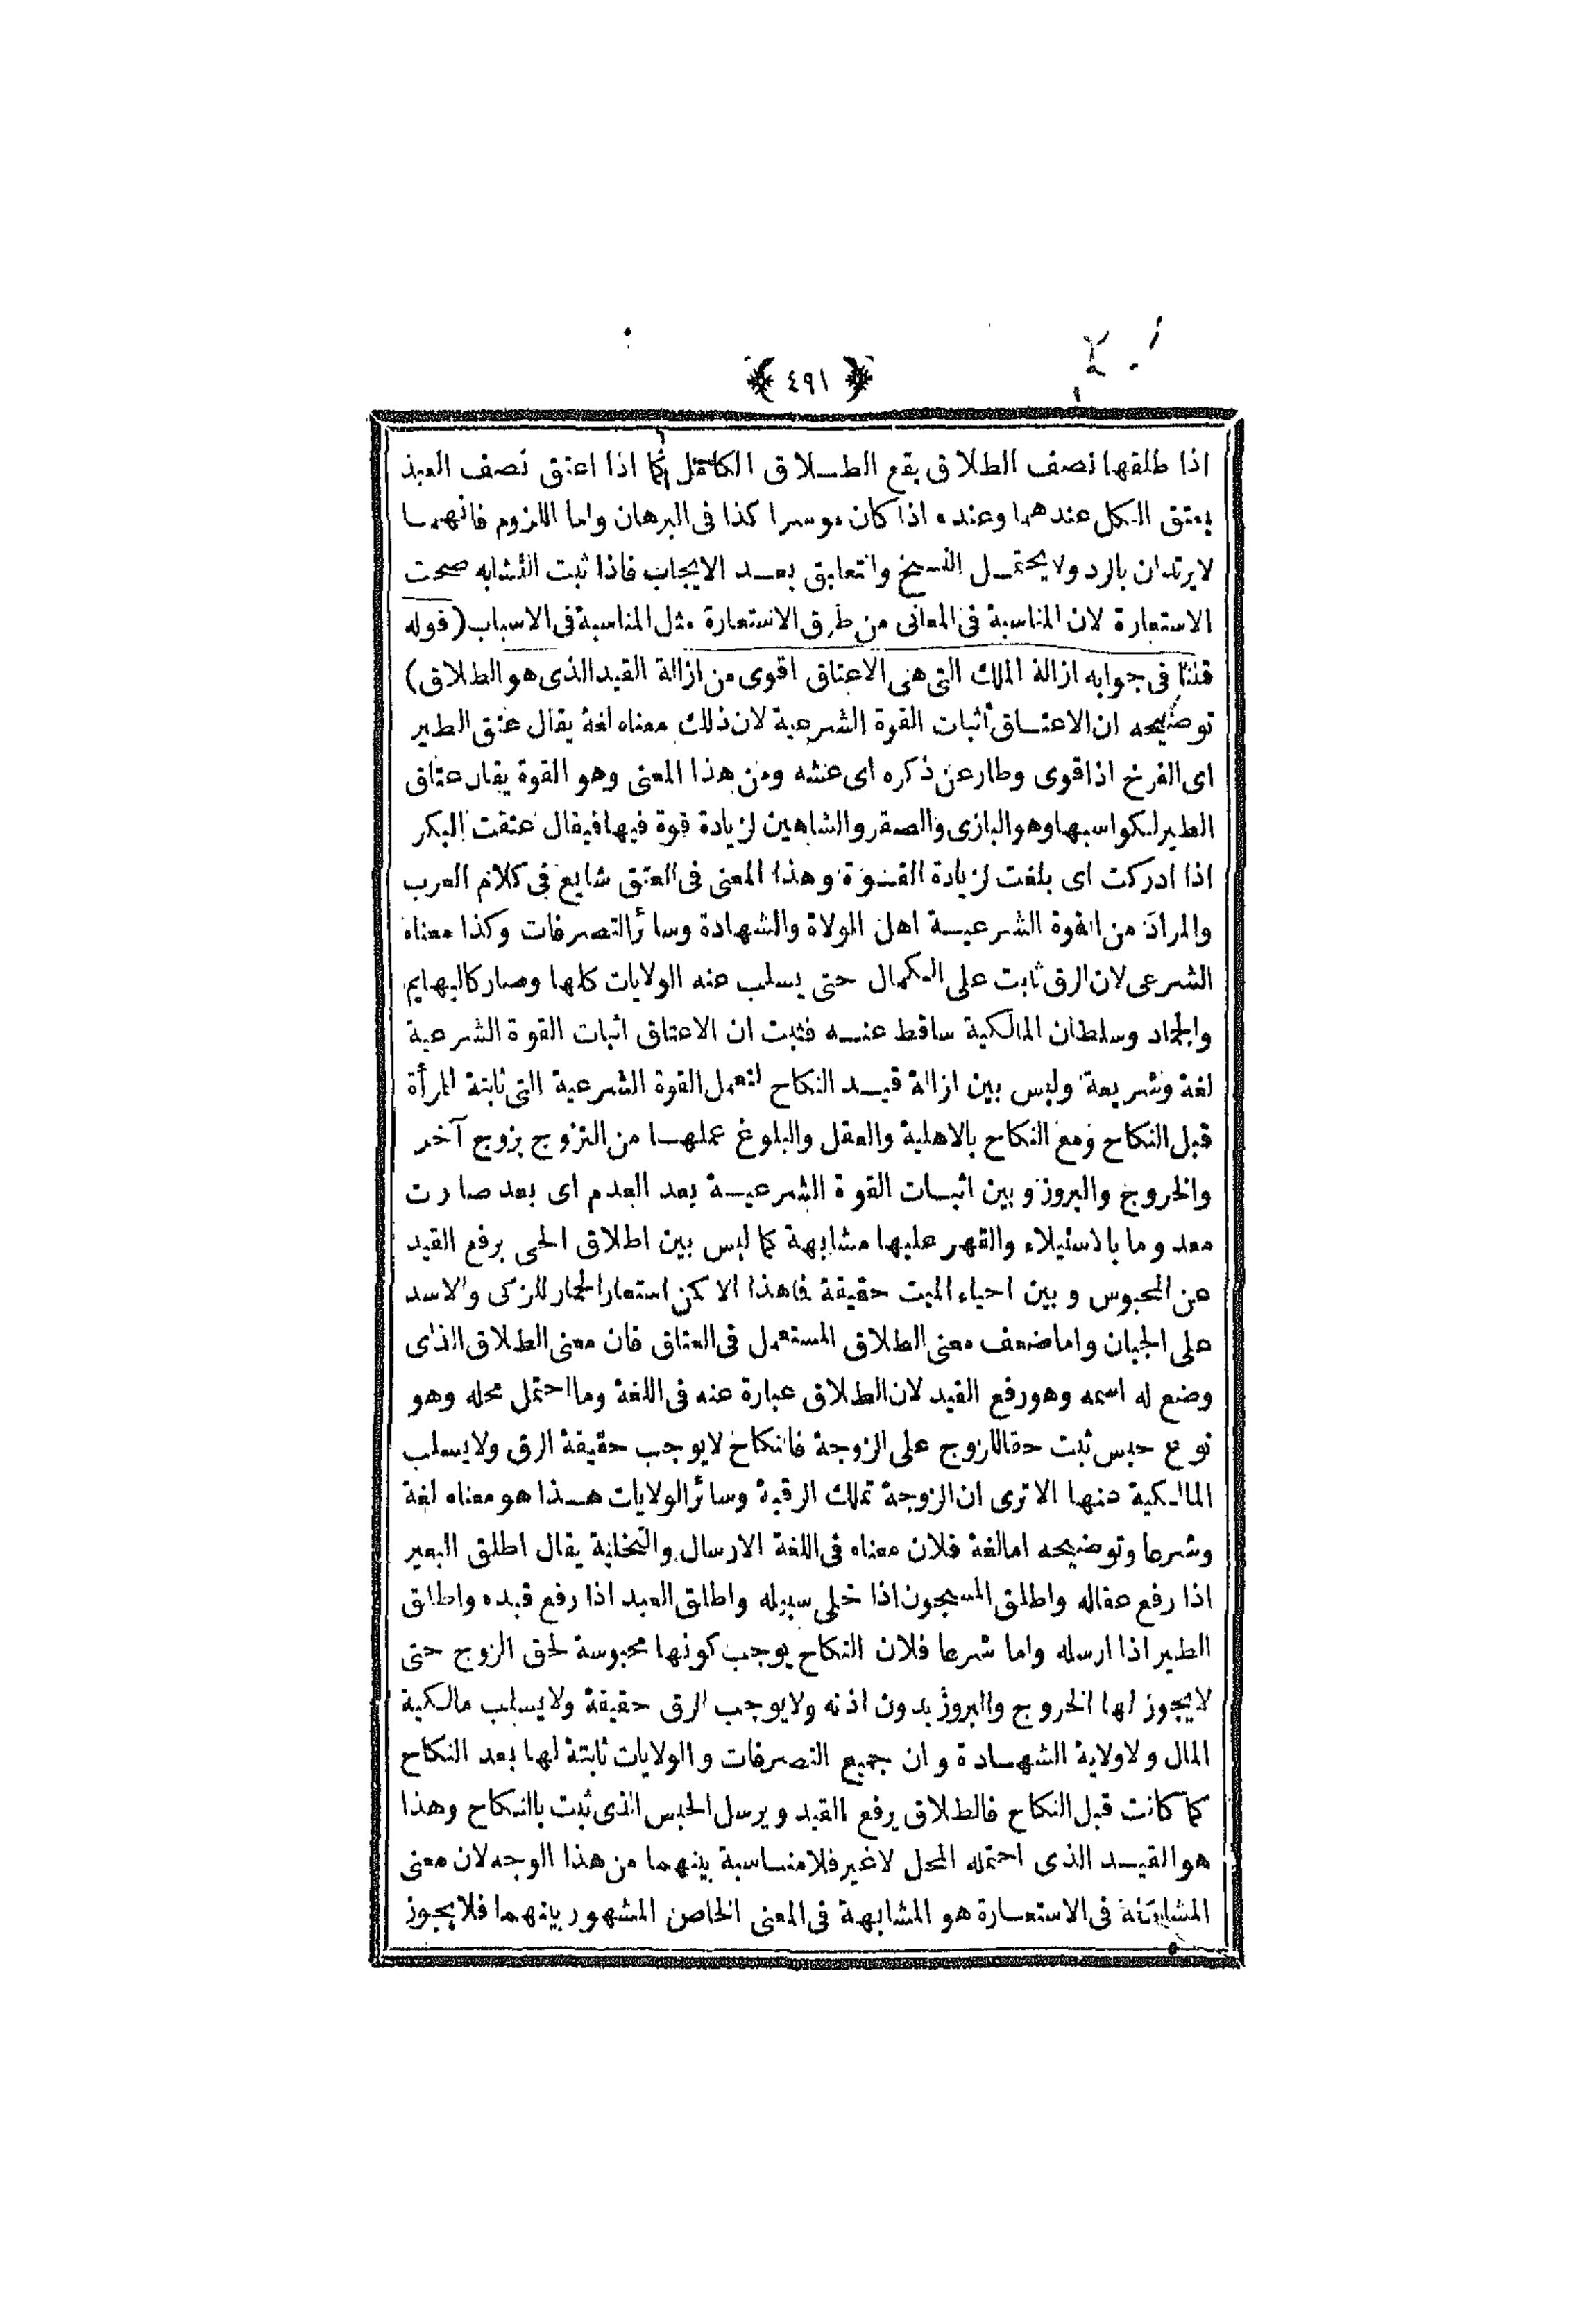 ﴿ ٤٩١ ﴾
اذا طلقها نصف الطلاق يقع الطـلاق الكامل كما اذا اعتق نصف العبد
يعتق الكل عندهما وعنده اذا كان موسرا كذا فى البرهان واما اللزوم فانهما
لا يرتدان بالرد ولا يحتمـل الفسخ والتعليق بعـد الايجاب فاذا ثبت التشابه صحت
الاستعارة لان المناسبة فى المعانى من طرق الاستعارة مثل المناسبة فى الاسباب (قوله
قلنا فى جوابه ازالة الملك التى هى الاعتاق اقوى من ازالة القيد الذى هو الطلاق)
توضيحه ان الاعتـاق أثبات القوة الشرعية لان ذلك معناه لغة يقال عتق الطير
اى الفرخ اذا قوى وطار عن ذكره اى عشه ومن هذا المعنى وهو القوة يقال عتاق
الطير لكواسبها وهو البازى والصقر والشاهين لزيادة قوة فيها فيقال عتقت البكر
اذا ادركت اى بلغت لزيادة القـوة وهذا المعنى فى العتق شايع فى كلام العرب
والمراد من القوة الشرعيـة اهل الولاة والشهادة وسائر التصرفات وكذا معناه
الشرعى لان الرق ثابت على الكمال حتى يسلب عنه الولايات كلها وصار كالبهايم
والجماد وسلطان المالكية ساقط عنـه فثبت ان الاعتاق اثبات القوة الشرعية
لغة وشريعة وليس بين ازالة قيـد النكاح لتعمل القوة الشرعية التى ثابتة المرأة
قبل النكاح ومع النكاح بالاهلية والعقل والبلوغ عملهـا من التزوج بزوج آخر
والخروج والبروز وبين اثبـات القوة الشرعيـة بعد العدم اى بعد صارت
معدوما بالاستيلاء والقهر عليها مشابهة كما ليس بين اطلاق الحى برفع القيد
عن المحبوس وبين احياء الميت حقيقة فاهذا الا كن استعار الحمار للزكى والاسد
على الجبان واما ضعف معنى الطلاق المستعمل فى العتاق فان معنى الطلاق الذى
وضع له اسمه وهو رفع القيد لان الطلاق عبارة عنه فى اللغة وما احتمل محله وهو
نوع حبس ثبت حقا للزوج على الزوجة فالنكاح لا يوجب حقيقة الرق ولا يسلب
المالكية عنها الا ترى ان الزوجة تملك الرقبة وسائر الولايات هـذا هو معناه لغة
وشرعا وتوضيحه اما لغة فلان معناه فى اللغة الارسال والتخلية يقال اطلق البعير
اذا رفع عقاله واطلق المسجون اذا خلى سبيله واطلق العبد اذا رفع قيده واطلق
الطير اذا ارسله واما شرعا فلان النكاح يوجب كونها محبوسة لحق الزوج حتى
لا يجوز لها الخروج والبروز بدون اذنه ولا يوجب الرق حقيقة ولا يسلب مالكية
المال ولا ولاية الشهـادة وان جميع التصرفات والولايات ثابتة لها بعد النكاح
كما كانت قبل النكاح فالطلاق يرفع القيد ويرسل الحبس الذى ثبت بالنكاح وهذا
هو القيـد الذى احتمله المحل لا غير فلا منـاسبة بينهما من هذا الوجه لان معنى
المشابهة فى الاستعـارة هو المشابهة فى المعنى الخاص المشهور بينهما فلا يجوز